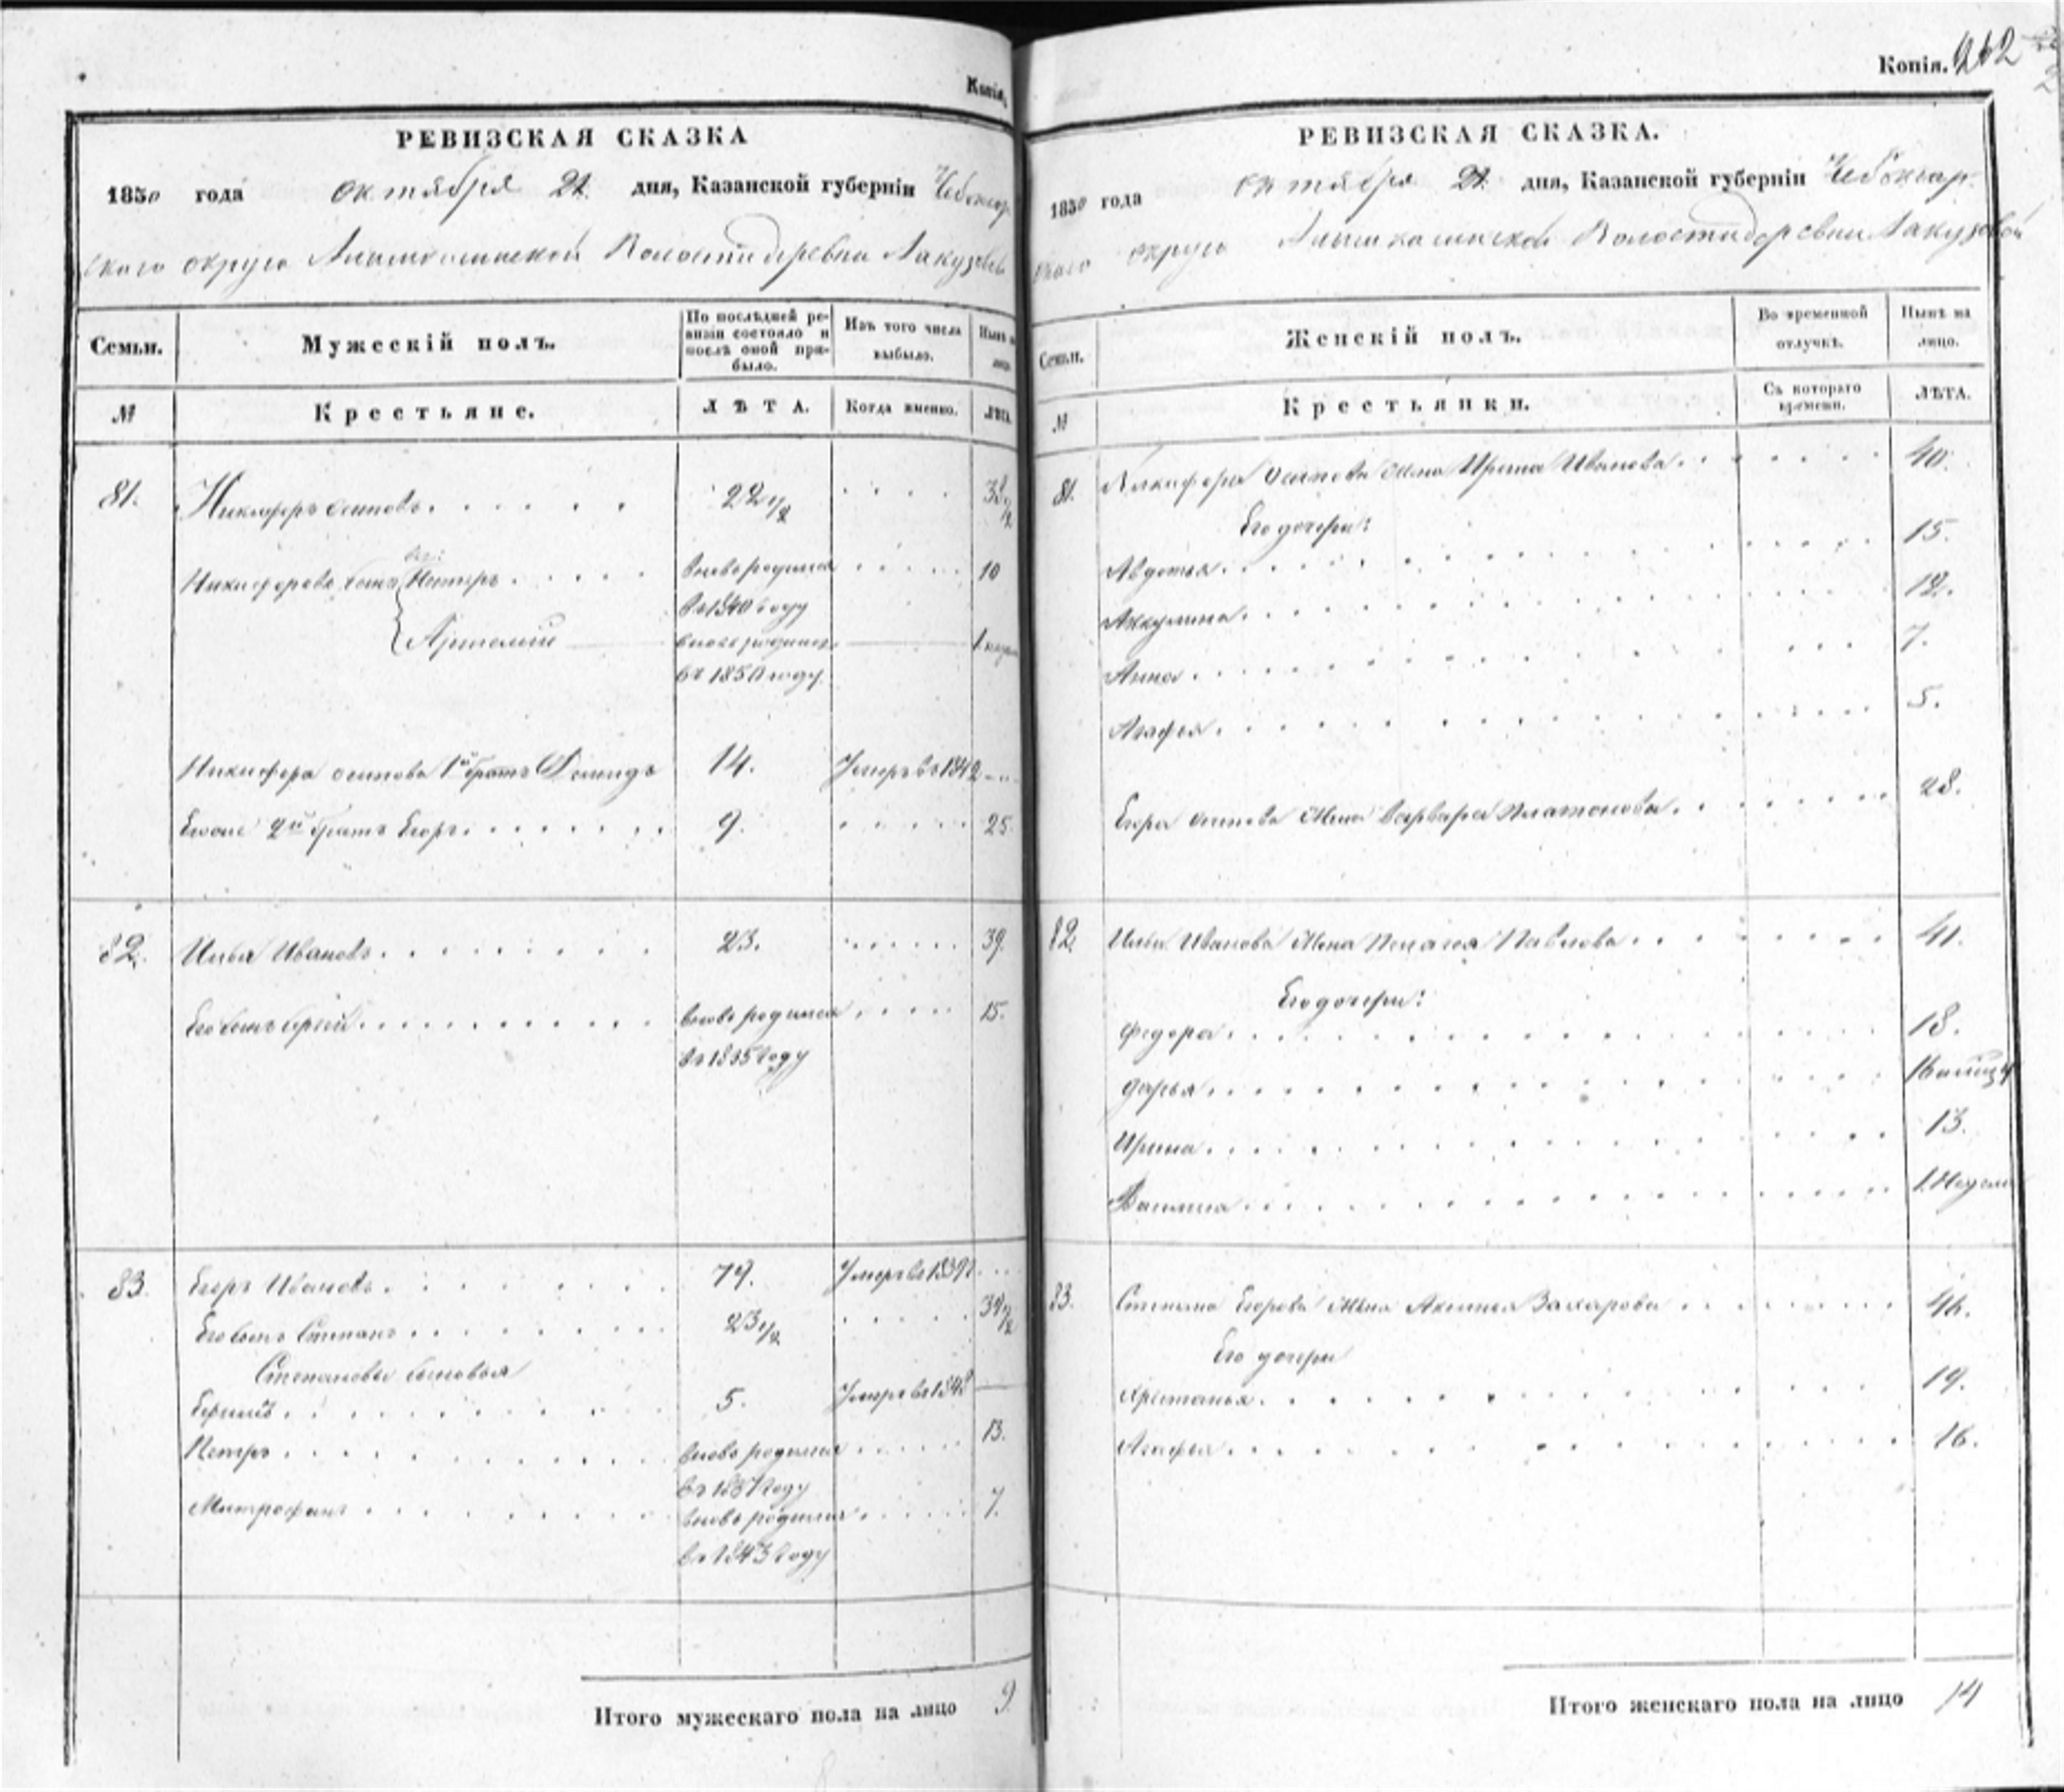 Копія.
РЕВИЗСКАЯ СКАЗКА
1850 года октября 21 дня, Казанской губерніи Чебоксар
скаго округа Волости деревни Лакузовой
Семьи.
Мужескій полъ.
По последней ревизіи состояло и после оной прибыло.
Изъ того числа выбыло.
Ныне на лицо
№
Крестьяне.
ЛѢТА.
Когда именно.
ЛѢТА.
81. Никифоръ Осиповъ 22 1/2 38 1/2
Никифоровъ сынъ Петръ вновь родился 10
въ 1840 году
Артемій вновь родился 1
въ 1850 году
Никифора Осипова 1й братъ Демидъ 14. Умеръ въ 1842
2й братъ Егоръ 9. 25.
82. Илья Ивановъ 23. 39.
Его сынъ вновь родился 15.
въ 1835 году
83. Егоръ Ивановъ 79. Умеръ въ
Его сынъ Степанъ 23 1/2 39 1/2
Степановы сыновья
5. Умеръ въ 1848
Петръ вновь родился 13.
въ 1837 году
Митрофанъ вновь родился 7.
въ 1843 году
Итого мужескаго пола на лицо 9
Копія. 262
РЕВИЗСКАЯ СКАЗКА.
1850 года октября 21 дня, Казанской губерніи Чебоксар
скаго округа Волости деревни Лакузовой
Семьи.
Женскій полъ.
Во временной отлучкѣ.
Нынѣ на лицо.
№
Крестьянки.
Съ котораго времени.
ЛѢТА.
81. Никифора Осипова жена Ирина Иванова 40.
Его дочери:
Авдотья 15.
Аккулина 12.
Анна 7.
Агафья 5.
Егора Осипова жена Варвара Платонова 28.
82. Ильи Иванова жена Пелагея Павлова 41.
Его дочери:
Федора 18.
Дарья 16
Ирина 13.
Василиса 1 Недели
83. Степана Егорова жена Аксинья Захарова
Его дочери
Христинья 19.
Агафья 16.
Итого женскаго пола на лицо 14